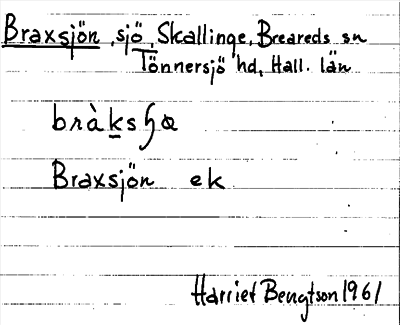 Braxsjön, sjö, Skallinge, Breareds sn
Tönnersjö hd, Hall. län
bràksɧɷ
Braxsjön ek
Harriet Bengtson 1961